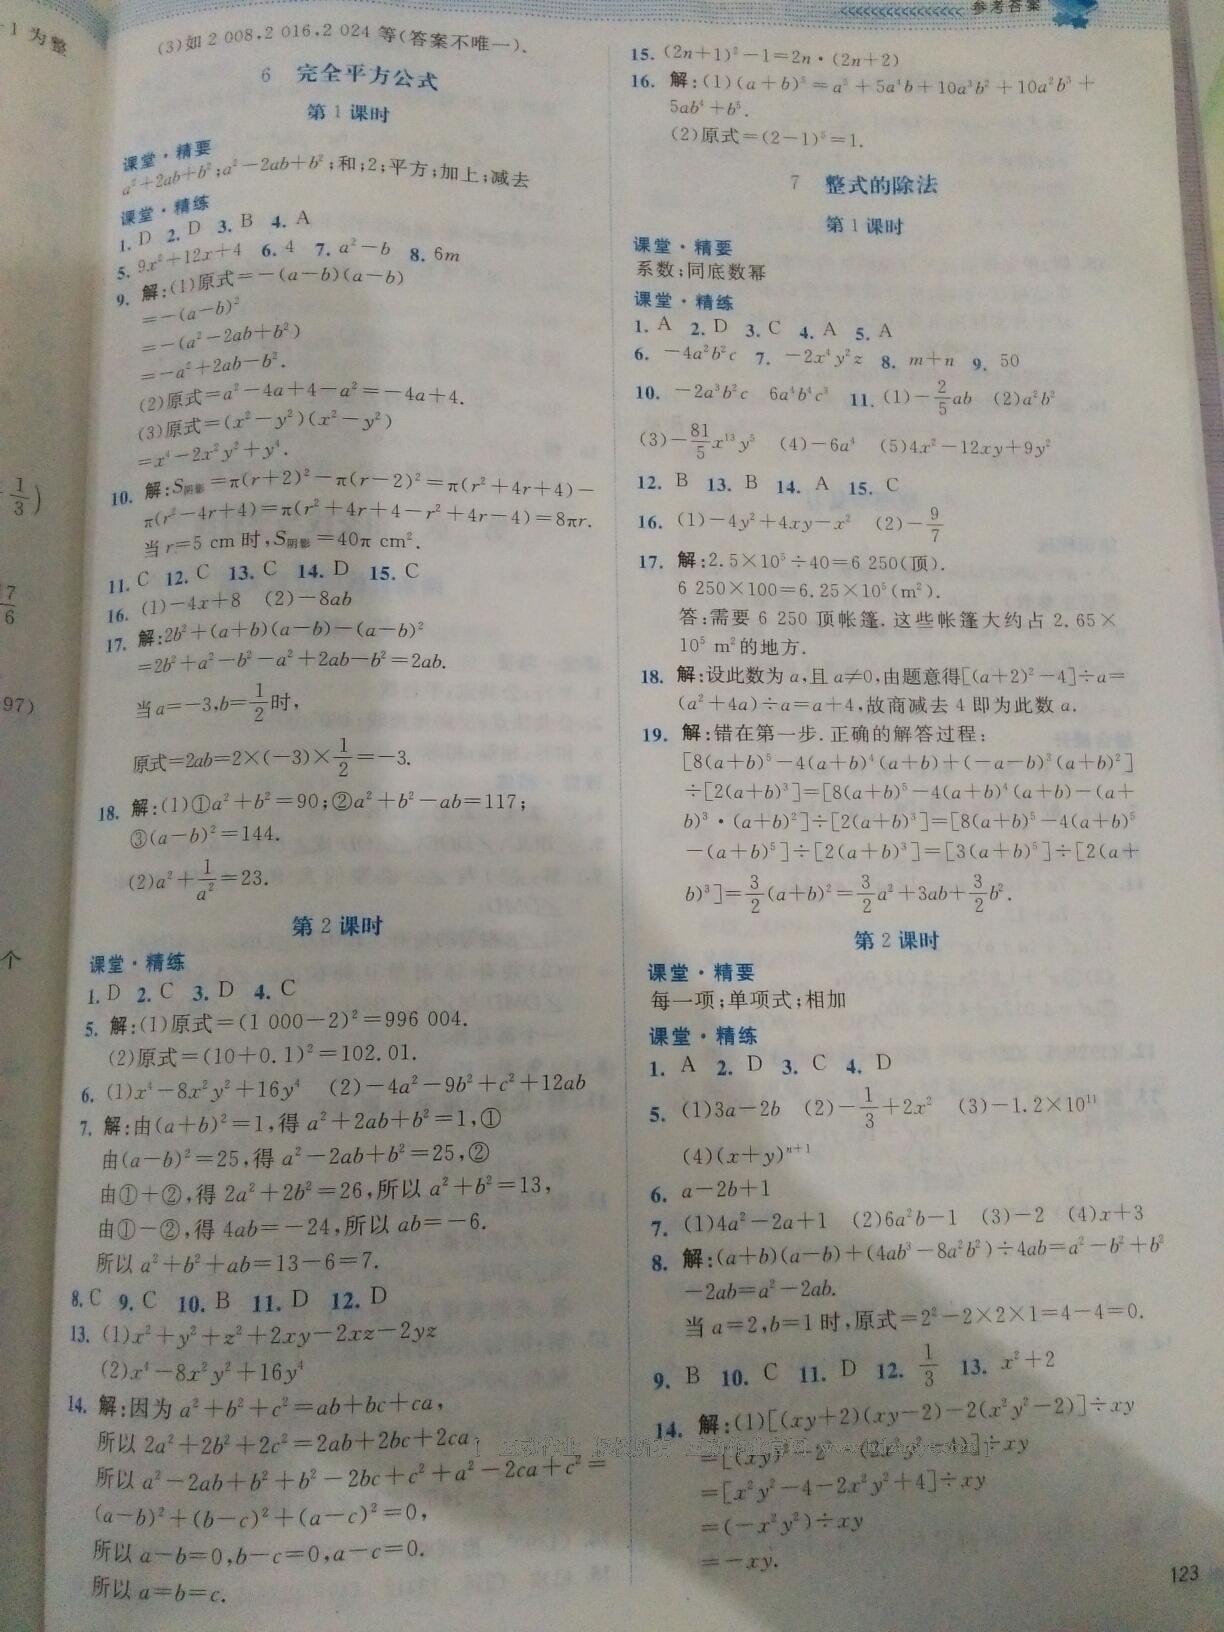 参考答案
1 为整
1/3)
17/6
97)
个
(3)如 2 008,2 016,2 024 等(答案不唯一).
6 完全平方公式
第 1 课时
课堂·精要
a²+2ab+b²;a²-2ab+b²;和;2;平方;加上;减去
课堂·精练
1. D 2. D 3. B 4. A
5. 9x²+12x+4 6. 4 7. a²-b 8. 6m
9. 解:(1)原式=-(a-b)(a-b)
=-(a-b)²
=-(a²-2ab+b²)
=-a²+2ab-b².
(2)原式=a²-4a+4-a²=-4a+4.
(3)原式=(x²-y²)(x²-y²)
=x⁴-2x²y²+y⁴.
10. 解:S阴影=π(r+2)²-π(r-2)²=π(r²+4r+4)-
π(r²-4r+4)=π(r²+4r+4-r²+4r-4)=8πr.
当 r=5 cm 时,S阴影=40π cm².
11. C 12. C 13. C 14. D 15. C
16. (1)-4x+8 (2)-8ab
17. 解:2b²+(a+b)(a-b)-(a-b)²
=2b²+a²-b²-a²+2ab-b²=2ab.
当a=-3,b=1/2时,
原式=2ab=2×(-3)×1/2=-3.
18. 解:(1)①a²+b²=90;②a²+b²-ab=117;
③(a-b)²=144.
(2)a²+1/a²=23.
第 2 课时
课堂·精练
1. D 2. C 3. D 4. C
5. 解:(1)原式=(1 000-2)²=996 004.
(2)原式=(10+0.1)²=102.01.
6. (1)x⁴-8x²y²+16y⁴ (2)-4a²-9b²+c²+12ab
7. 解:由(a+b)²=1,得 a²+2ab+b²=1,①
由(a-b)²=25,得 a²-2ab+b²=25,②
由①+②,得 2a²+2b²=26,所以 a²+b²=13,
由①-②,得 4ab=-24,所以 ab=-6.
所以 a²+b²+ab=13-6=7.
8. C 9. C 10. B 11. D 12. D
13. (1)x²+y²+z²+2xy-2xz-2yz
(2)x⁴-8x²y²+16y⁴
14. 解:因为 a²+b²+c²=ab+bc+ca,
所以 2a²+2b²+2c²=2ab+2bc+2ca
所以 a²-2ab+b²+b²-2bc+c²+a²-2ca+c²=
(a-b)²+(b-c)²+(a-c)²=0,
所以 a-b=0,b-c=0,a-c=0.
所以 a=b=c.
15. (2n+1)²-1=2n·(2n+2)
16. 解:(1)(a+b)⁵=a⁵+5a⁴b+10a³b²+10a²b³+
5ab⁴+b⁵.
(2)原式=(2-1)⁵=1.
7 整式的除法
第 1 课时
课堂·精要
系数;同底数幂
课堂·精练
1. A 2. D 3. C 4. A 5. A
6. -4a²b²c 7. -2x⁴y²z 8. m+n 9. 50
10. -2a³b²c 6a⁴b⁴c³ 11. (1)-2/5ab (2)a²b²
(3)-81/5x¹³y⁵ (4)-6a⁴ (5)4x²-12xy+9y²
12. B 13. B 14. A 15. C
16. (1)-4y²+4xy-x² (2)-9/7
17. 解:2.5×10⁵÷40=6 250(顶).
6 250×100=6.25×10⁵(m²).
答:需要 6 250 顶帐篷.这些帐篷大约占 2.65×
10⁵ m²的地方.
18. 解:设此数为 a,且 a≠0,由题意得[(a+2)²-4]÷a=
(a²+4a)÷a=a+4,故商减去 4 即为此数 a.
19. 解:错在第一步.正确的解答过程:
[8(a+b)⁵-4(a+b)⁴(a+b)+(-a-b)³(a+b)²]
÷[2(a+b)³]=[8(a+b)⁵-4(a+b)⁴(a+b)-(a+
b)³·(a+b)²]÷[2(a+b)³]=[8(a+b)⁵-4(a+b)⁵
-(a+b)⁵]÷[2(a+b)³]=[3(a+b)⁵]÷[2(a+
b)³]=3/2(a+b)²=3/2a²+3ab+3/2b².
第 2 课时
课堂·精要
每一项;单项式;相加
课堂·精练
1. A 2. D 3. C 4. D
5. (1)3a-2b (2)-1/3+2x² (3)-1.2×10¹¹
(4)(x+y)ⁿ⁺¹
6. a-2b+1
7. (1)4a²-2a+1 (2)6a²b-1 (3)-2 (4)x+3
8. 解:(a+b)(a-b)+(4ab³-8a²b²)÷4ab=a²-b²+b²
-2ab=a²-2ab.
当 a=2,b=1 时,原式=2²-2×2×1=4-4=0.
9. B 10. C 11. D 12. 1/3 13. x²+2
14. 解:(1)[(xy+2)(xy-2)-2(x²y²-2)]÷xy
=[(xy)²-2²-(2x²y²-4)]÷xy
=[x²y²-4-2x²y²+4]÷xy
=(-x²y²)÷xy
=-xy.
123